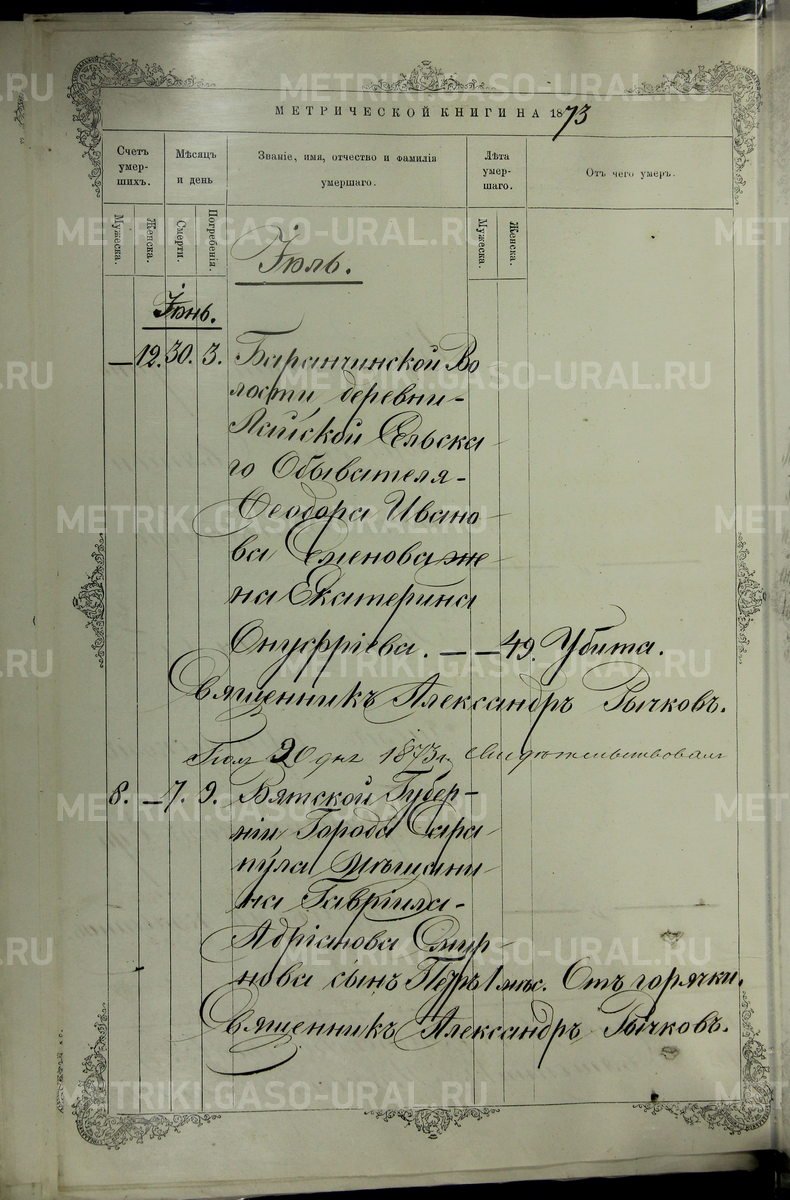 МЕТРИЧЕСКОЙ КНИГИ НА 1873
Счетъ умер-шихъ.
Мѣсяцъ и день
Званіе, имя, отчество и фамилія умершаго.
Лѣта умер-шаго.
Отъ чего умеръ.
Мужеска.
Женска.
Смерти.
Погребенія.
Мужеска.
Женска.
Іюль.
Іюнь.
— 12. 30. 3. Баранчинской Во
лости деревни-
Лайской Сельска-
го Обывателя-
Ѳеодора Ивано-
ва Семенова же-
на Екатерина
Онуфріева. — — 49. Убита.
Священникъ Александръ Рычковъ.
20 дня 1873 г. Свидѣтельствовалъ
8. — 7. 9. Вятской Губер-
ніи Города Сара-
пула Мѣщани-
на Гавріила-
Адріанова Смир-
нова сынъ Петръ 1 мѣс. Отъ горячки.
Священникъ Александръ Рычковъ.
METRIKI.GASO-URAL.RU